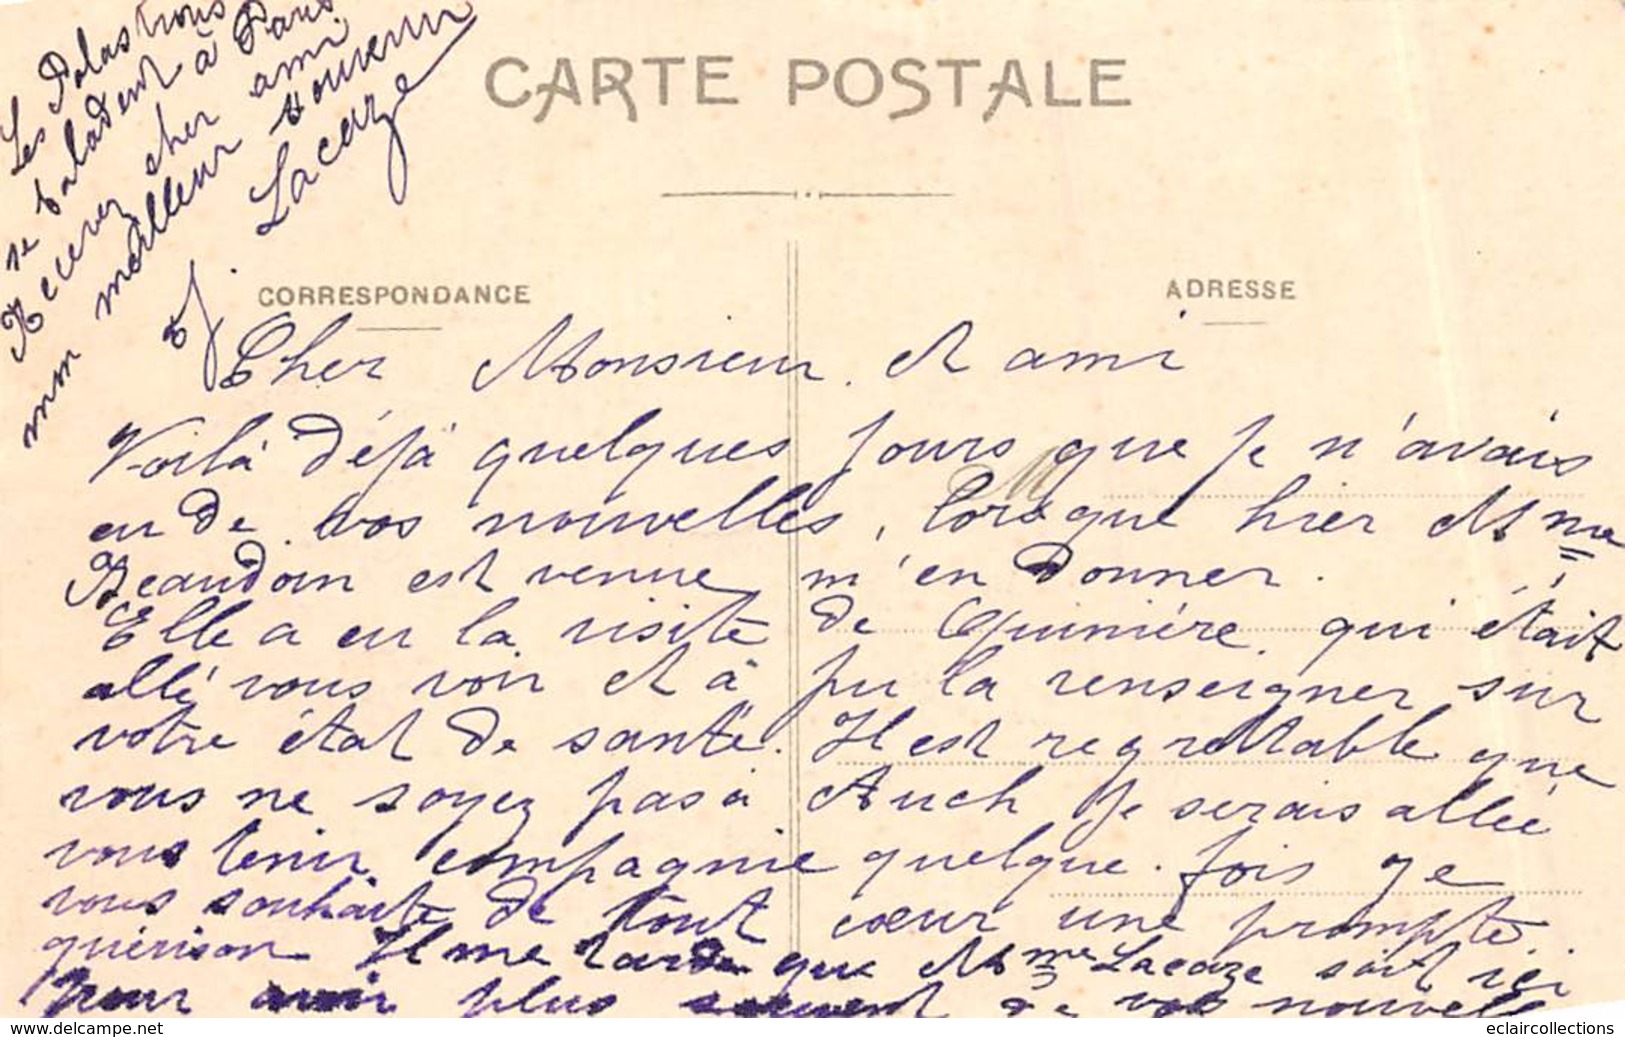 CARTE POSTALE
CORRESPONDANCE
ADRESSE
Cher Monsieur. et ami
Voilà déjà quelques jours que je n'avais
eu de vos nouvelles, lorsque hier Mme
Beaudoin est venue m'en donner.
Elle a eu la visite de Quinière qui était
allé vous voir et à pu la renseigner sur
votre état de santé. Il est regrettable que
vous ne soyez pas à Auch je serais allée
vous tenir compagnie quelque. fois je
vous souhaite de tout cœur une prompte.
guérison Il me tarde que Mme Lacaze soit ici
pour avoir plus souvent de vos nouvell
Les Palastrous
se baladent à Paris.
Recevez cher ami
mon meilleur souvenir
J. Lacaze
www.delcampe.net
eclaircollections